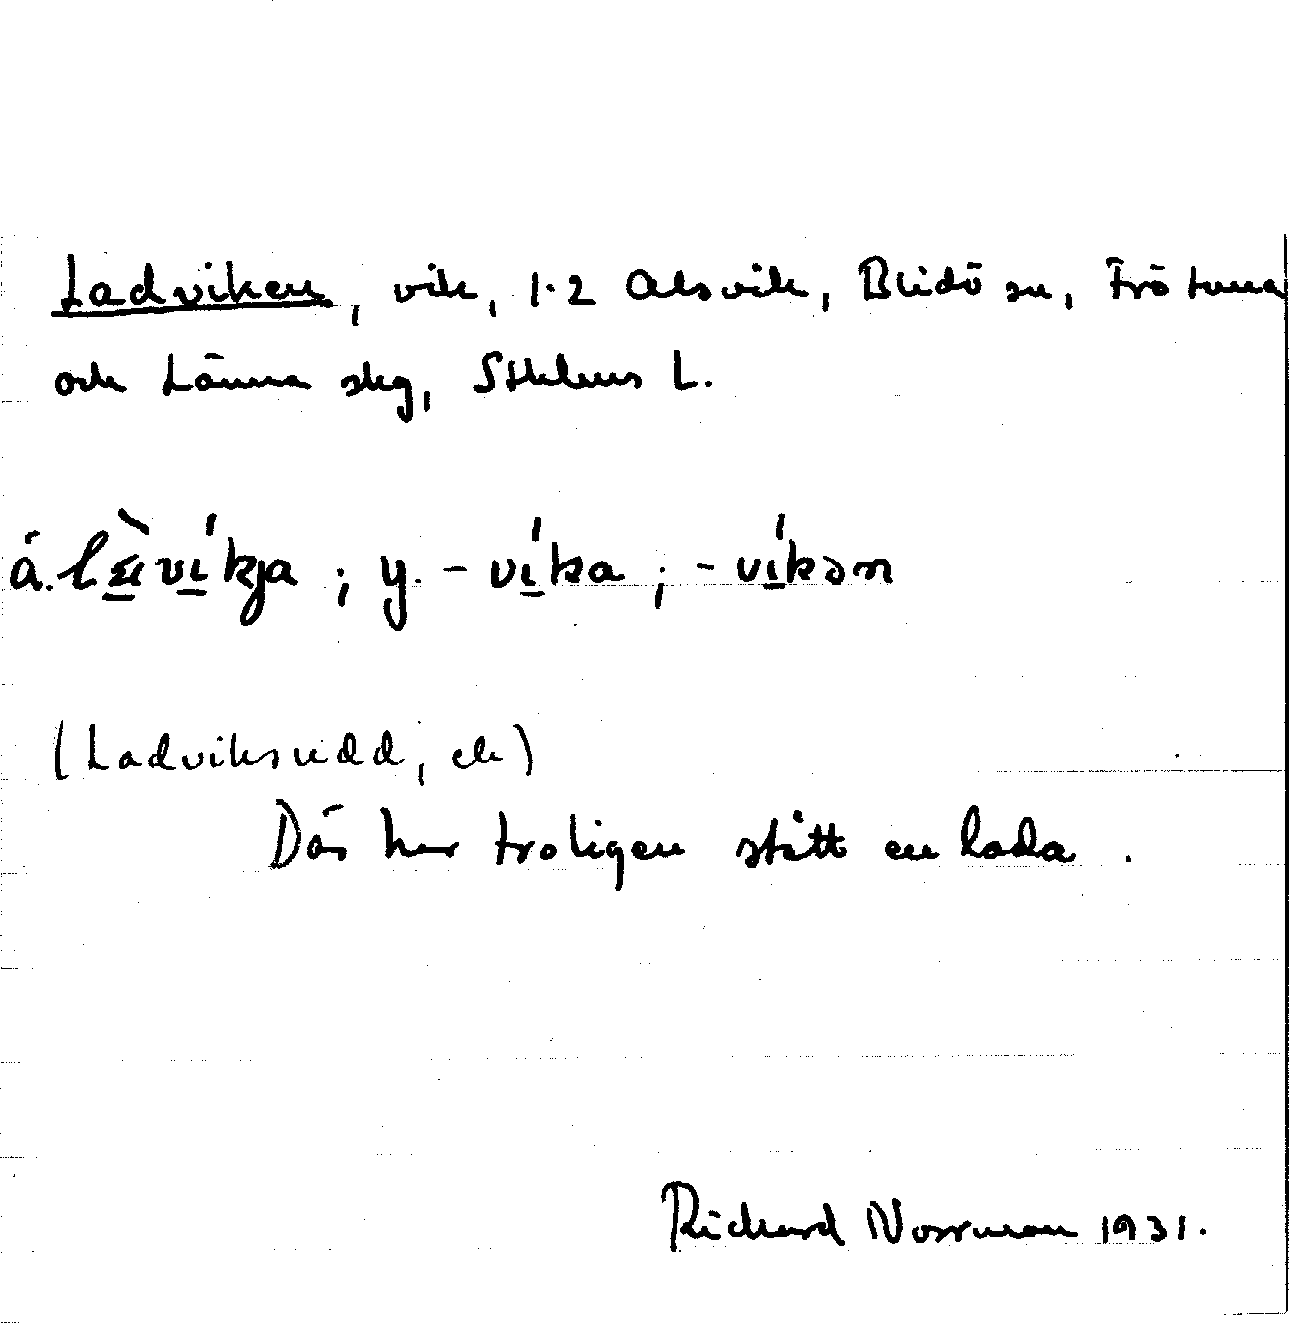 Ladviken, vik, 1·2 Alsvik, Blidö sn, Frötuna
och Länna skg, Sthlms L.
ví̱kja ; y. - ví̱ka ; - ví̱kən
(Ladviksudd, ek)
Där har troligen stått en lada .
Richard Norrman 1931.